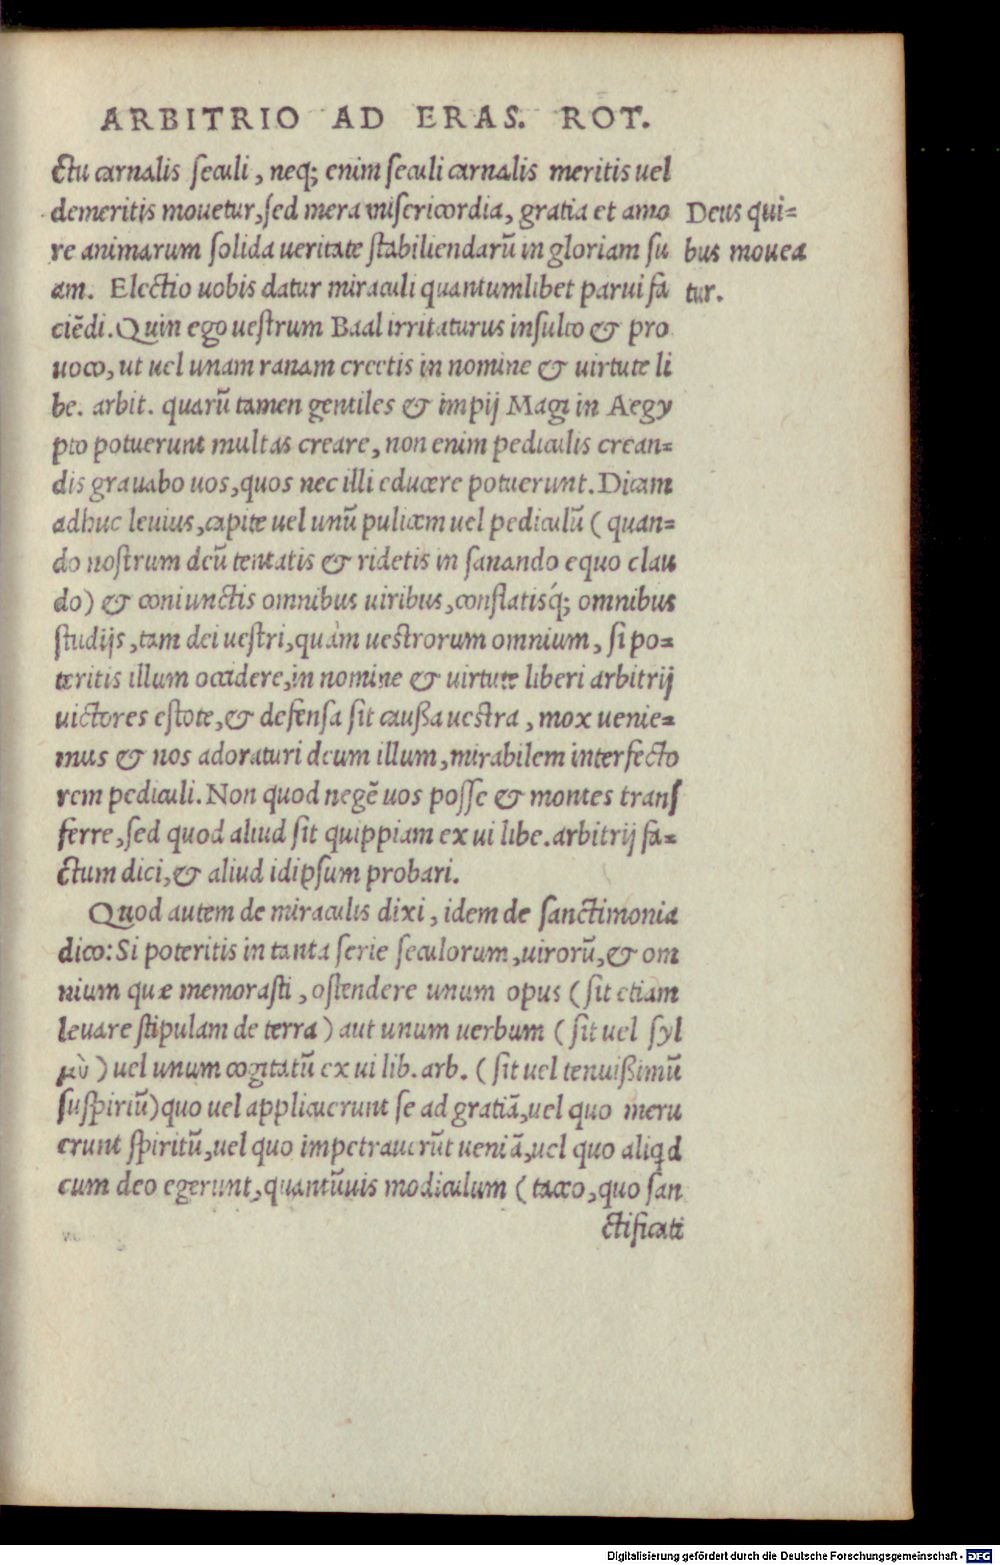 ARBITRIO AD ERAS. ROT.
ctu carnalis seculi, neq; enim seculi carnalis meritis uel
demeritis mouetur, sed mera misericordia, gratia et amo
re animarum solida ueritate stabiliendarū in gloriam su
am. Electio uobis datur miraculi quantumlibet parui fa
ciēdi. Quin ego uestrum Baal irritaturus insulto & pro
uoco, ut uel unam ranam creetis in nomine & uirtute li
be. arbit. quarū tamen gentiles & impij Magi in Aegy
pto potuerunt multas creare, non enim pediculis crean=
dis grauabo uos, quos nec illi educere potuerunt. Dicam
adhuc leuius, capite uel unū pulicem uel pediculū (quan=
do nostrum deū tentatis & ridetis in sanando equo clau
do) & coniunctis omnibus uiribus, conflatisq́; omnibus
studijs, tam dei uestri, quàm uestrorum omnium, si po=
teritis illum occidere, in nomine & uirtute liberi arbitrij
uictores estote, & defensa sit caußa uestra, mox uenie=
mus & nos adoraturi deum illum, mirabilem interfecto
rem pediculi. Non quod negē uos posse & montes trans
ferre, sed quod aliud sit quippiam ex ui libe. arbitrij fa=
ctum dici, & aliud idipsum probari.
Quod autem de miraculis dixi, idem de sanctimonia
dico: Si poteritis in tanta serie seculorum, uirorū, & om
nium quæ memorasti, ostendere unum opus (sit etiam
leuare stipulam de terra) aut unum uerbum (sit uel syl
μὺ) uel unum cogitatū ex ui lib. arb. (sit uel tenuißimū
suspiriū) quo uel applicuerunt se ad gratiā, uel quo meru
erunt spiritū, uel quo impetrauerūt ueniā, uel quo aliqd
cum deo egerunt, quantūuis modiculum (taceo, quo san
ctificati
Deus qui=
bus mouea
tur.
Digitalisierung gefördert durch die Deutsche Forschungsgemeinschaft - DFG